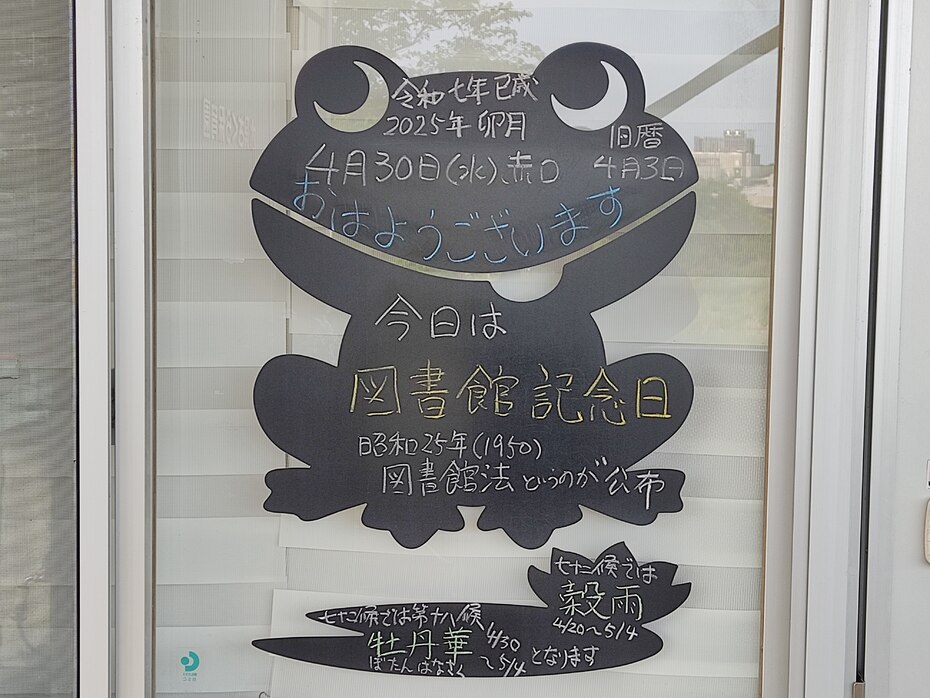 令和七年巳歳
2025年卯月
旧暦
4月30日(水)赤口
4月3日
おはようございます
今日は
図書館記念日
昭和25年(1950)
図書館法というのが公布
七十二候では
穀雨
4/20〜5/4
七十二候では第十八候
牡丹華
4/30
〜5/4
となります
ぼたんはなさく